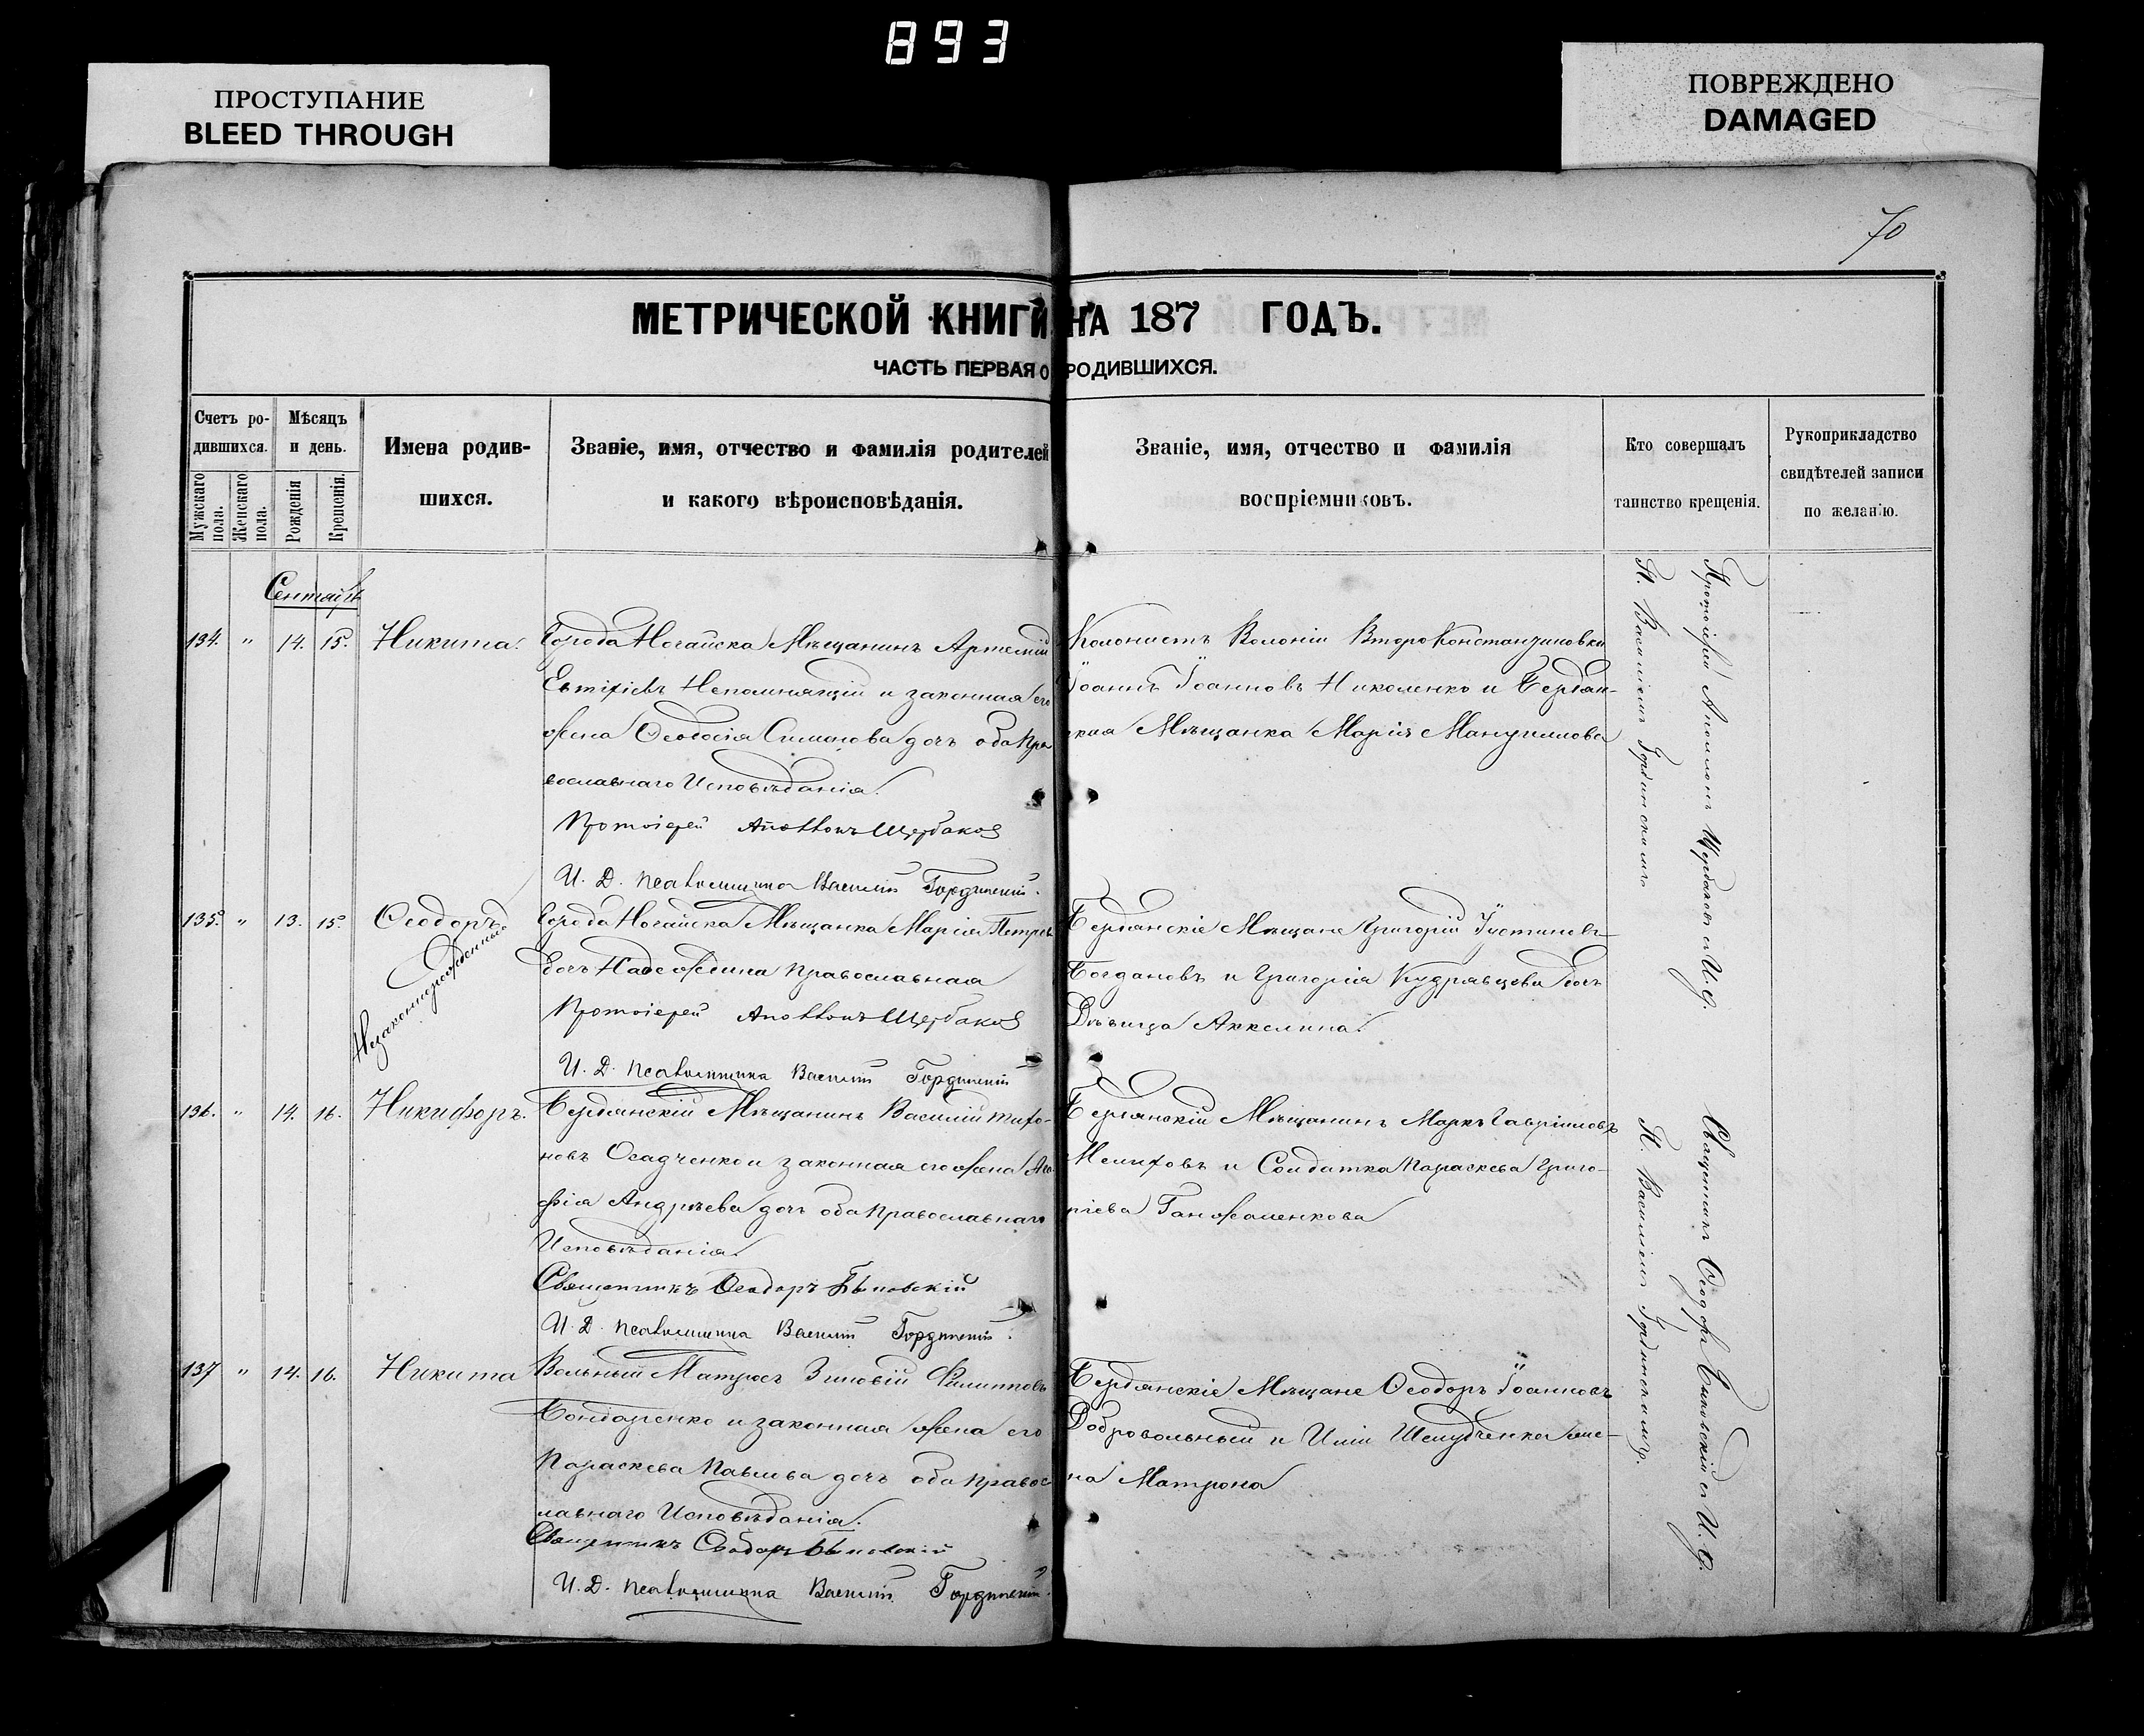 893
ПРОСТУПАНИЕ
BLEED THROUGH
ПОВРЕЖДЕНО
DAMAGED
70
МЕТРИЧЕСКОЙ КНИГИ НА 187 ГОДЪ.
ЧАСТЬ ПЕРВАЯ О РОДИВШИХСЯ.
Счетъ ро-
дившихся.
Мужскаго пола.
Женскаго пола.
Мѣсяцъ
и день.
Рожденія
Крещенія.
Имена родив-
шихся.
Званіе, имя, отчество и фамилія родителей
и какого вѣроисповѣданія.
Званіе, имя, отчество и фамилія
воспріемниковъ.
Кто совершалъ
таинство крещенія.
Рукоприкладство
свидѣтелей записи
по желанію.
Сентябрь
134. " 14. 15. Никита.
Города Ногайска Мѣщанинъ Артемій
Евтихіевъ Непомнящій и законная его
жена Ѳеодосія Симонова дочь оба Пра
вославнаго Исповѣданія.
Протоіерей Аполлонъ Щербаковъ
И. Д. Псаломщика Василій Гординскій.
Колонистъ Колоніи Второ Константиновки
Іоаннъ Іоанновъ Николенко и Бердян-
ская Мѣщанка Марія Мануилова
Протоіерей Аполлонъ Щербаковъ съ И. д.
П. Василіемъ Гординскимъ
135. " 13. 15. Ѳеодоръ
Незаконнорожденный
Города Ногайска Мѣщанка Марія Петрова
дочь Надеждина Православная
Протоіерей Аполлонъ Щербаковъ
И. Д. Псаломщика Василій Гординскій
Бердянскіе Мѣщане Григорій Іустиновъ
Богдановъ и Григорія Кудрявцева дочь
Дѣвица Аккелина.
136. " 14. 16. Никифоръ.
Бердянскій Мѣщанинъ Василій Тихо-
новъ Осадченко и законная его жена Ага
фія Андрѣева дочь оба Православнаго
Исповѣданія.
Священникъ Ѳеодоръ
И. Д. Псаломщика Василій Гординскій.
Бердянскій Мѣщанинъ Маркъ Гавріиловъ
Мелиховъ и Солдатка Параскева Григо-
ріева
Священникъ Ѳеодоръ съ И. д.
П. Василіемъ Гординскимъ.
137 " 14. 16. Никита
Вольный Матросъ Зиновій Филипповъ
Бондаренко и законная жена его
Параскева Павлова дочь оба Правос
лавнаго Исповѣданія.
Священникъ Ѳеодоръ
И. Д. Псаломщика Василій Гординскій.
Бердянскіе Мѣщане Ѳеодоръ Іоанновъ
Добровольный и Иліи жe-
на Матрона